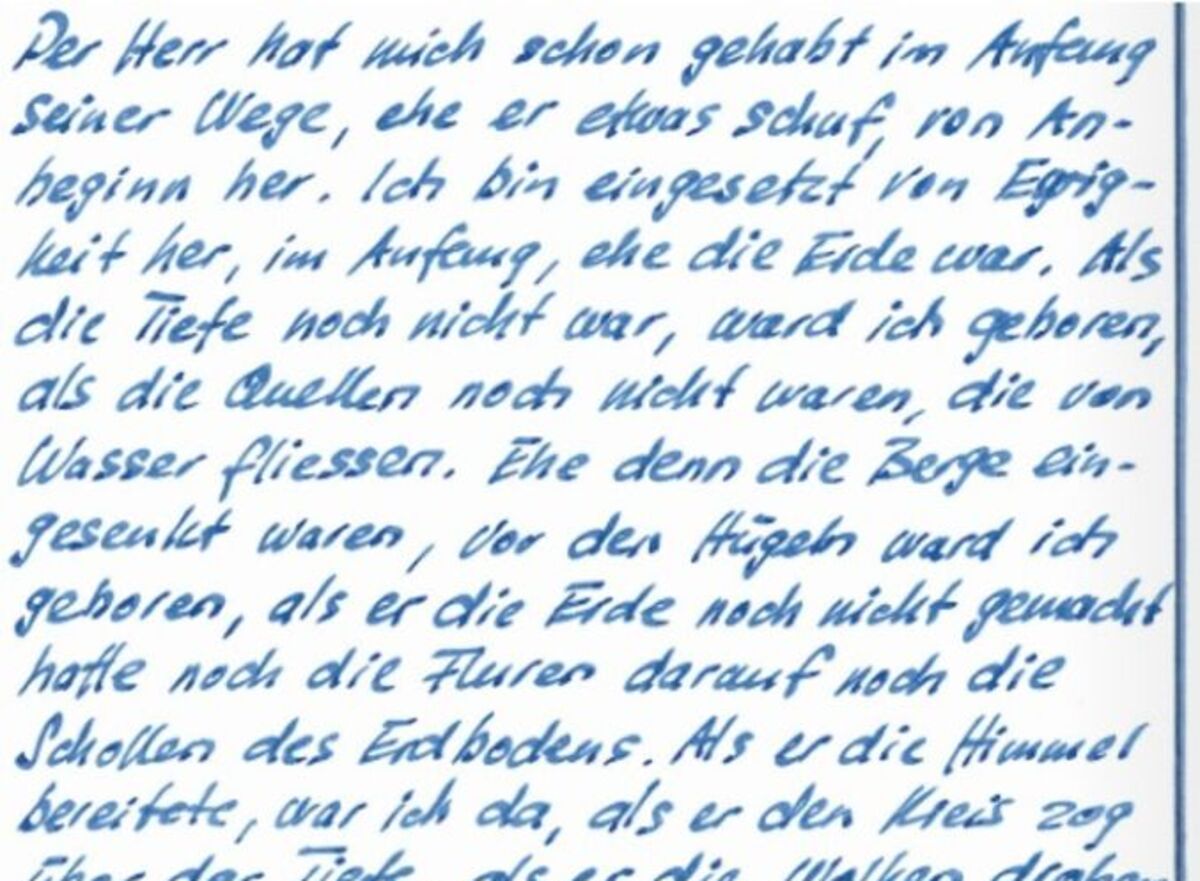 Der Herr hat mich schon gehabt im Anfang
seiner Wege, ehe er etwas schuf, von An-
beginn her. Ich bin eingesetzt von Ewig-
keit her, im Anfang, ehe die Erde war. Als
die Tiefe noch nicht war, ward ich geboren,
als die Quellen noch nicht waren, die von
Wasser fliessen. Ehe denn die Berge ein-
gesenkt waren, vor den Hügeln ward ich
geboren, als er die Erde noch nicht gemacht
hatte noch die Fluren darauf noch die
Schollen des Erdbodens. Als er die Himmel
bereitete, war ich da, als er den Kreis zog
über der Tiefe, als er die Wolken droben